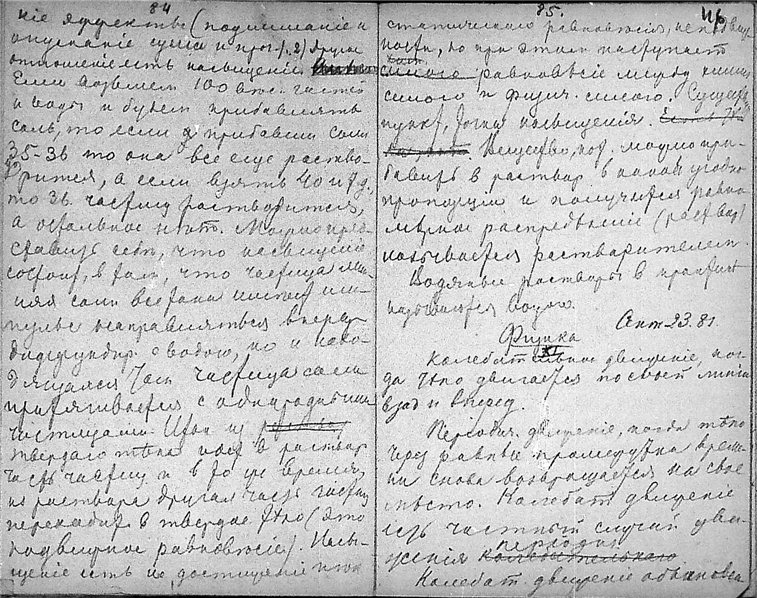 84
ніе эффекты (поднимание и
опускание суши и проч.). 2) Другое
отношение есть насыщеніе.
Если возьмем 100 вес. частей
воды и будем прибавлять
соль, то если прибавим соли
35-36 то она все еще раство-
рится, а если взять 40 и т.д.
то 36 частиц растворится,
а остальное нет. Можно пред-
ставить себе, что насыщение
состоит в том, что частица
соли все таки имеет им-
пульс направляться вверх
диффундир. с водою, но и нахо-
дящаяся там частица соли
притягивается с однородными
частицами. Итак из
твердаго тела идет в раствор
часть частиц и в то же время,
из раствора другая часть частиц
переходит в твердое тело (это
подвижное равновесіе). Насы-
щение есть не достижение
85. 46
статическаго равновесія, неподвиж-
ности, но при этом наступает
равновесіе между хими.
силою и физич. силою. Существ.
пункт, точка насыщения.
Вещество, кот. можно при-
бавить в раствор в какой угодно
пропорции и получится равно-
мерное распределение (раствор)
называется растворителем.
Водяные растворы в практике
называются водою.
Сент. 23. 81.
Физика
Колебательное движение, ког-
да тело двигается по своей линии
взад и вперед.
Периодич. движение, когда тело
через равные промежутки време-
ни снова возвращается на свое
место. Колебат. движение
есть частный случай дви-
жения периодич.
Колебат. движение обыкновен